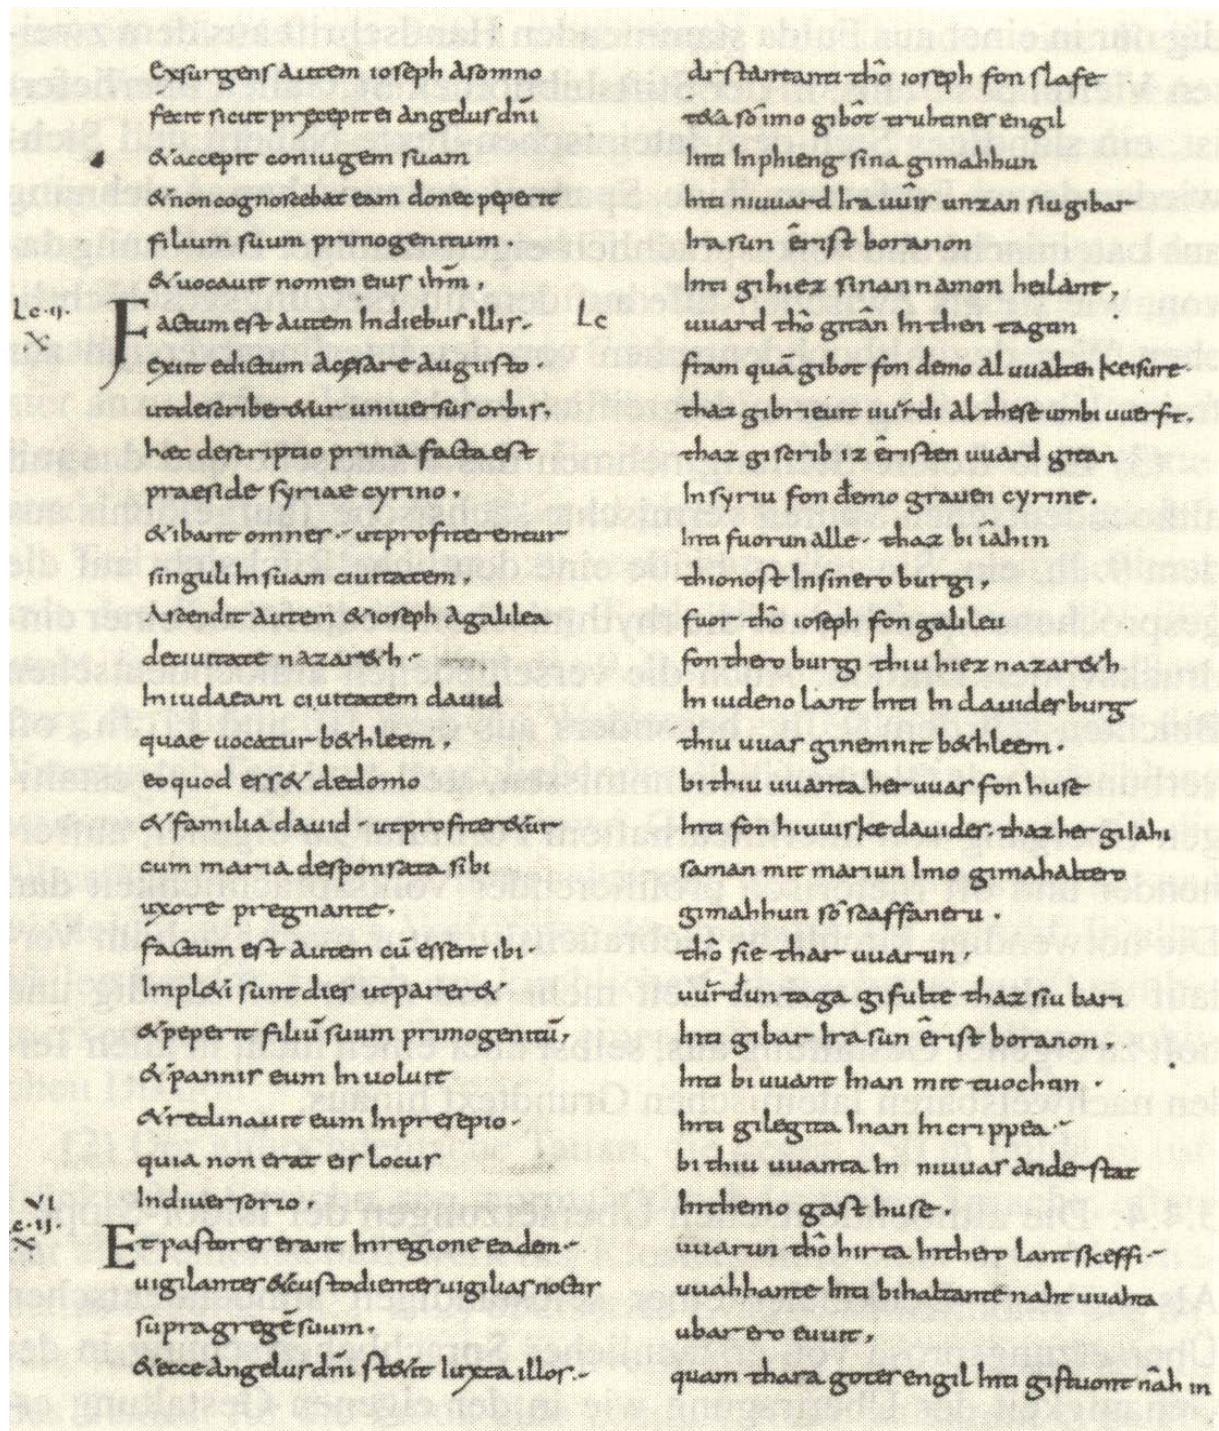 Exsurgens autem ioseph asomno
fecit sicut precepit ei angelus dñi
& accepit coniugem suam
& non cognoscebat eam donec peperit
filium suum primogenitum.
& uocauit nomen eius ihm̄,
Lc·ij·
X
Factum est autem Indiebus illis.
exiit edictum acęsare augusto.
utdescriber&ur universus orbis,
hæc descriptio prima facta est
praeside syriae cyrino,
& ibant omnes. utprofiterentur
singuli Insuam ciuitatem,
Ascendit autem & ioseph agalilea
deciuitate nazar&h.
Iniudaeam ciuitatem dauid
quae uocatur b&hleem,
eoquod ess& dedomo
& familia dauid. utprofiter&ur
cum maria desponsata sibi
uxore pregnante.
factum est autem cū essent ibi.
Impl&i sunt dies utparer&
& peperit filiū suum primogenitū,
& pannis eum Inuoluit
& reclinauit eum Inpresepio.
quia non erat eis locus
Indiuersorio,
VI
c·ij·
X
Et pastores erant Inregione eadem.
uigilantes & custodientes uigilias noctis
supra gregē suum.
& ecce angelus dñi st&it Iuxta illos.
arstantanti thô ioseph fon slafe
t&a sô imo gibôt truhtines engil
Inti Inphieng sina gimahhun
Inti niuuard Ira uuîs unzan siu gibar
Ira sun êrist boranon
Inti gihiez sinan namon heilant,
Lc
uuard thô gitân In then tagun
fram quā gibot fon demo aluualten keisure.
thaz gibrieuit uuŕdi al these umbiuuerft.
thaz giscrib iz êristen uuard gitan
In syriu fon demo grauen cyrine.
Inti fuorun alle. thaz biiâhin
thionost Insinero burgi,
fuor thô ioseph fon galileu
fon thero burgi thiu hiez nazar&h
In iudeno lant Inti In dauides burg
thiu uuas ginemnit b&hleem.
bithiu uuanta her uuas fon huse
Inti fon hiuuiske dauides. thaz her giiahi
saman mit mariun Imo gimahaltero
gimahhun sô scaffaneru.
thô sie thar uuarun,
uuŕdun taga gifulte thaz siu bari
Inti gibar Ira sun êrist boranon,
Inti biuuant Inan mit tuochun.
Inti gilegita Inan Incrippea.
bithiu uuanta In niuuas ander stat
Inthemo gasthuse.
uuarun thô hirta Inthero lantskeffi.
uuahhante Inti bihaltante naht uuahta
ubar ero euuit,
quam thara gotes engil Inti gistuont nâh in